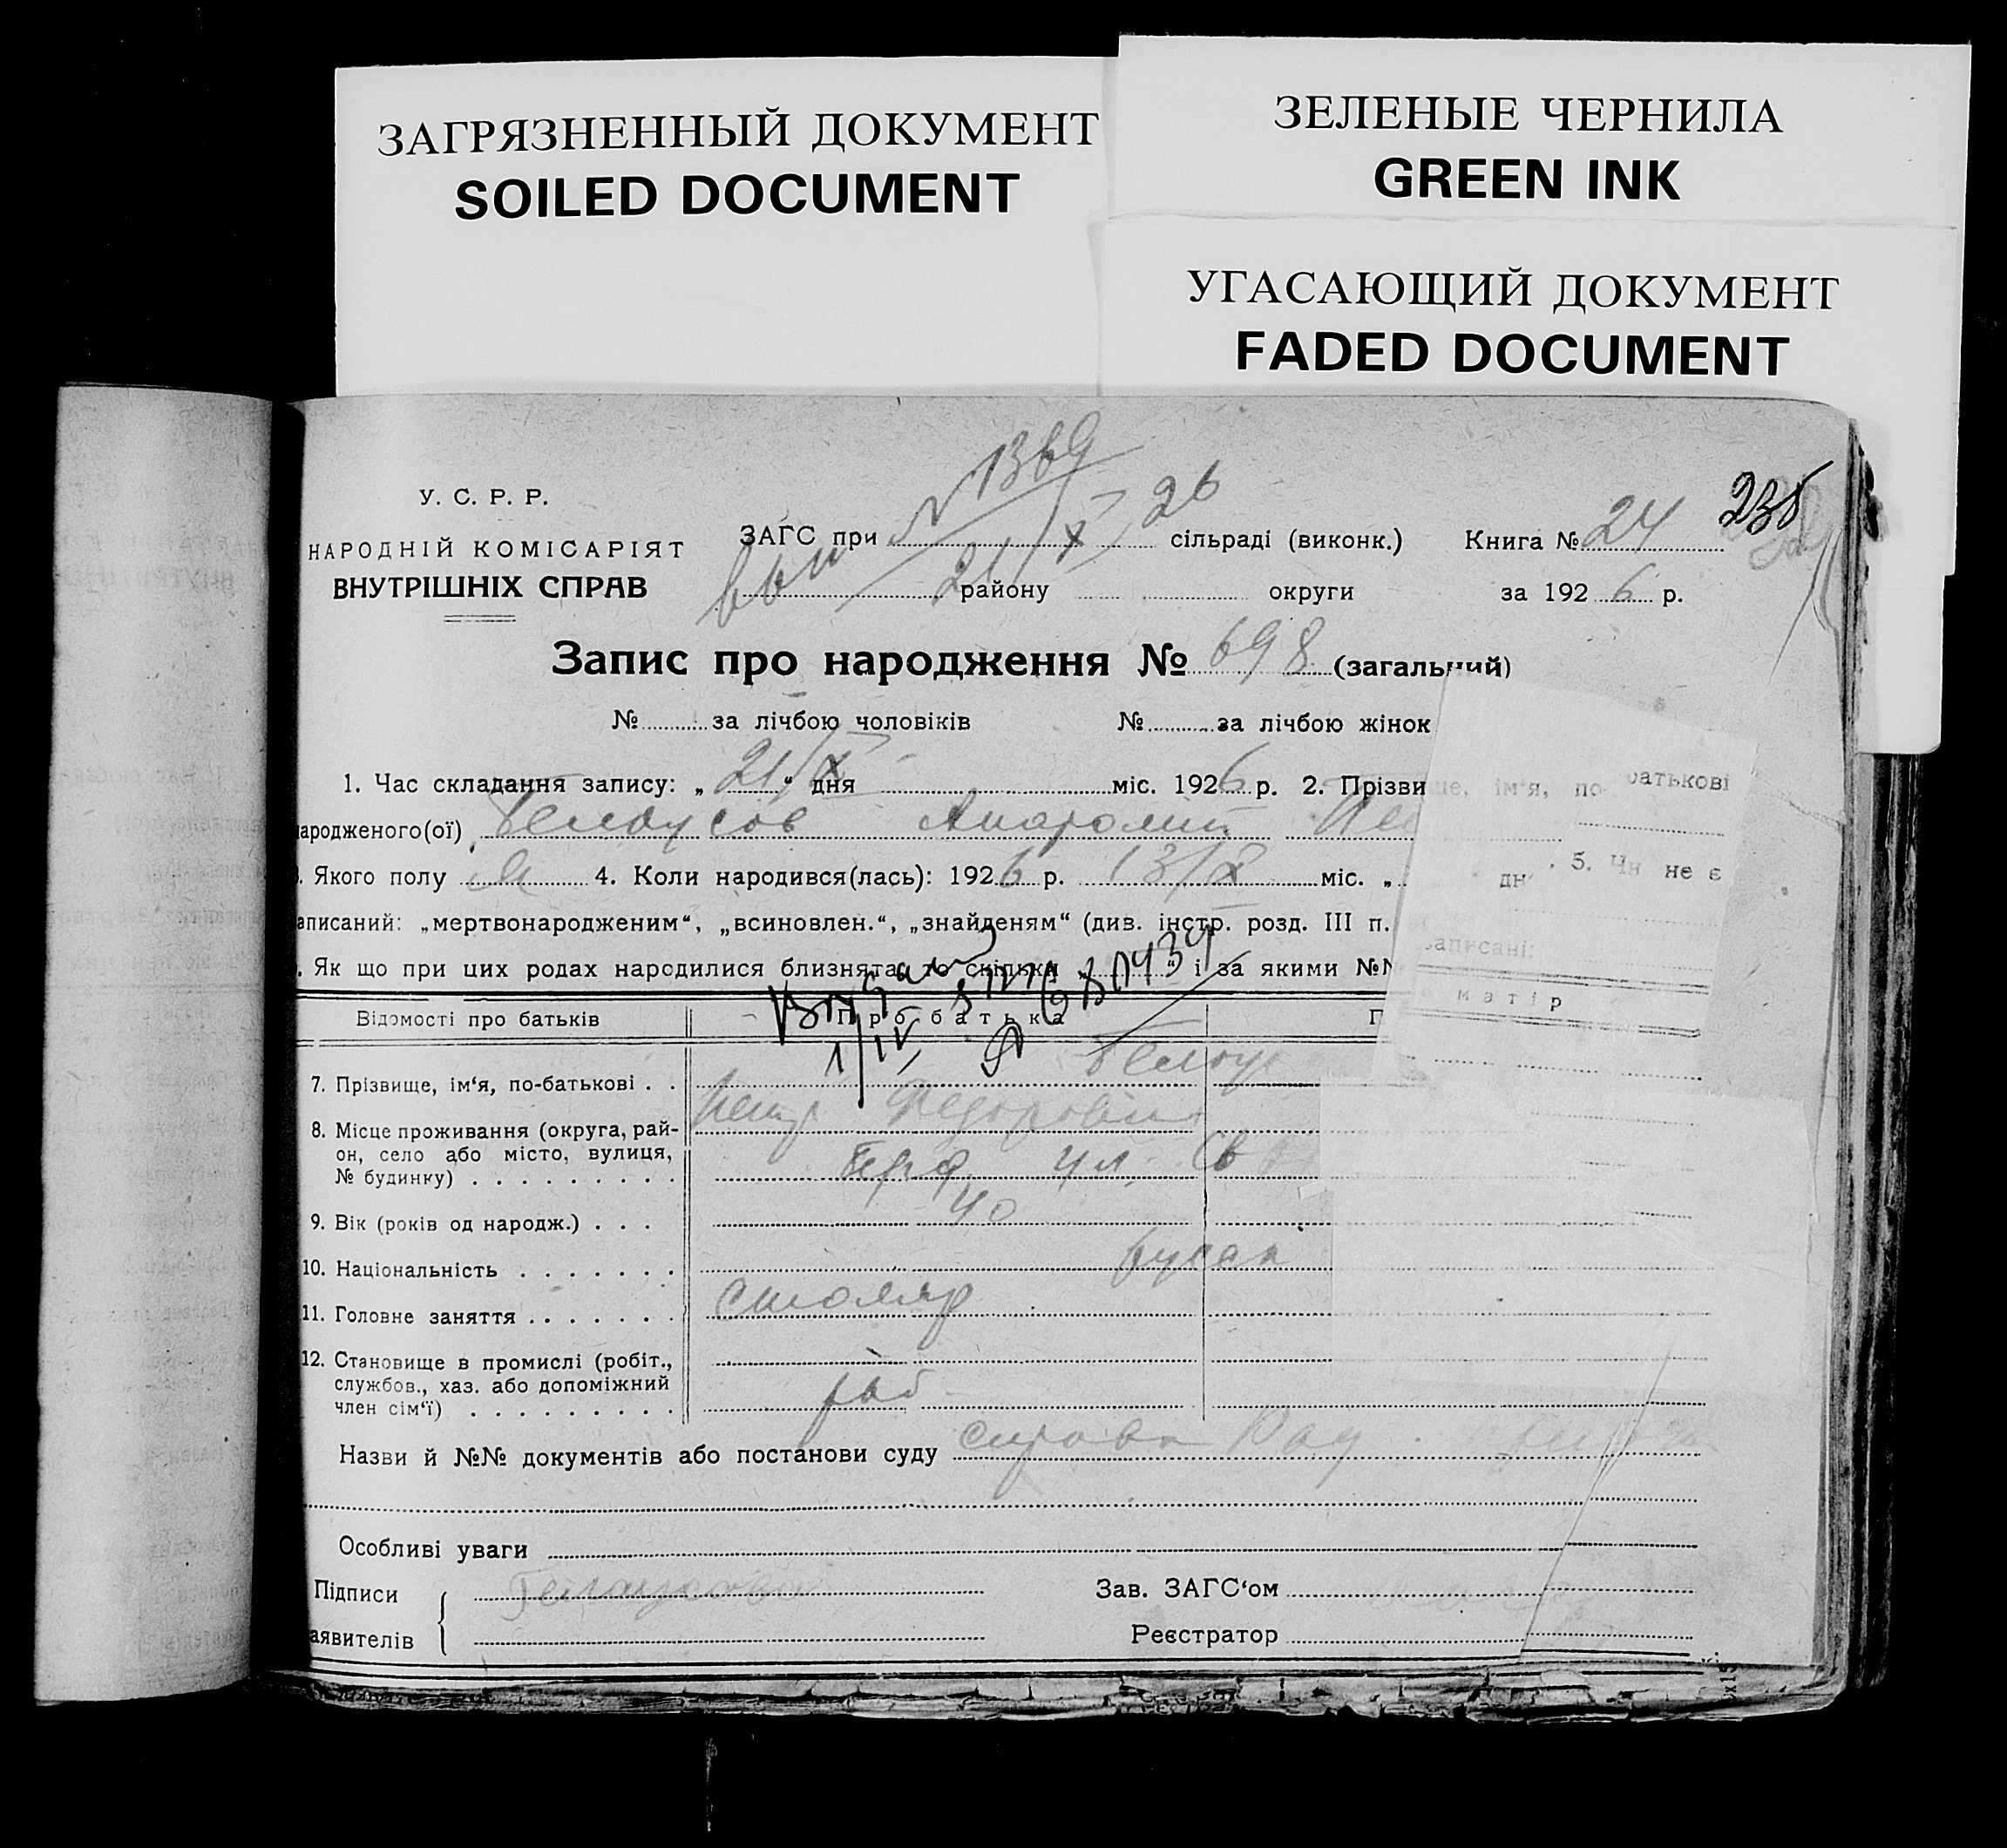 ЗАГРЯЗНЕННЫЙ ДОКУМЕНТ
SOILED DOCUMENT
ЗЕЛЕНЫЕ ЧЕРНИЛА
GREEN INK
УГАСАЮЩИЙ ДОКУМЕНТ
FADED DOCUMENT
У. С. Р. Р.
НАРОДНІЙ КОМІСАРІЯТ
ВНУТРІШНІХ СПРАВ
N 1369
21/X 26
ЗАГС при сільраді (виконк.) Книга № 24
району округи за 1926 р.
Запис про народження № 698 (загальний)
№ за лічбою чоловіків № за лічбою жінок
1. Час складання запису: „ 21/X “ дня міс. 1926 р. 2. Прізви ще, ім'я, по- батькові
народженого(ої) Белоусов Анатолий
. Якого полу М 4. Коли народився(лась): 1926 р. 13/X міс. „ дн . 5. Чи не є
аписаний: „мертвонародженим“, „всиновлен.“, „знайденям“ (див. інстр. розд. III п.
. Як що при цих родах народилися близнята, то скільки „ “ і за якими №№ записані
Відомості про батьків Про батька матір
1/IV
7. Прізвище, ім'я, по-батькові . . Белоус
Петр Федорович
8. Місце проживання (округа, рай-
он, село або місто, вулиця, ул. Св
№ будинку) . . . . . . . . .
9. Вік (років од народж.) . . . 40
10. Національність . . . . . . .
11. Головне заняття . . . . . . . столяр
12. Становище в промислі (робіт.,
службов., хаз. або допоміжний раб
член сім'ї) . . . . . . . . .
Назви й №№ документів або постанови суду справка
Особливі уваги
Підписи Белоусова Зав. ЗАГС'ом
аявителів Реєстратор